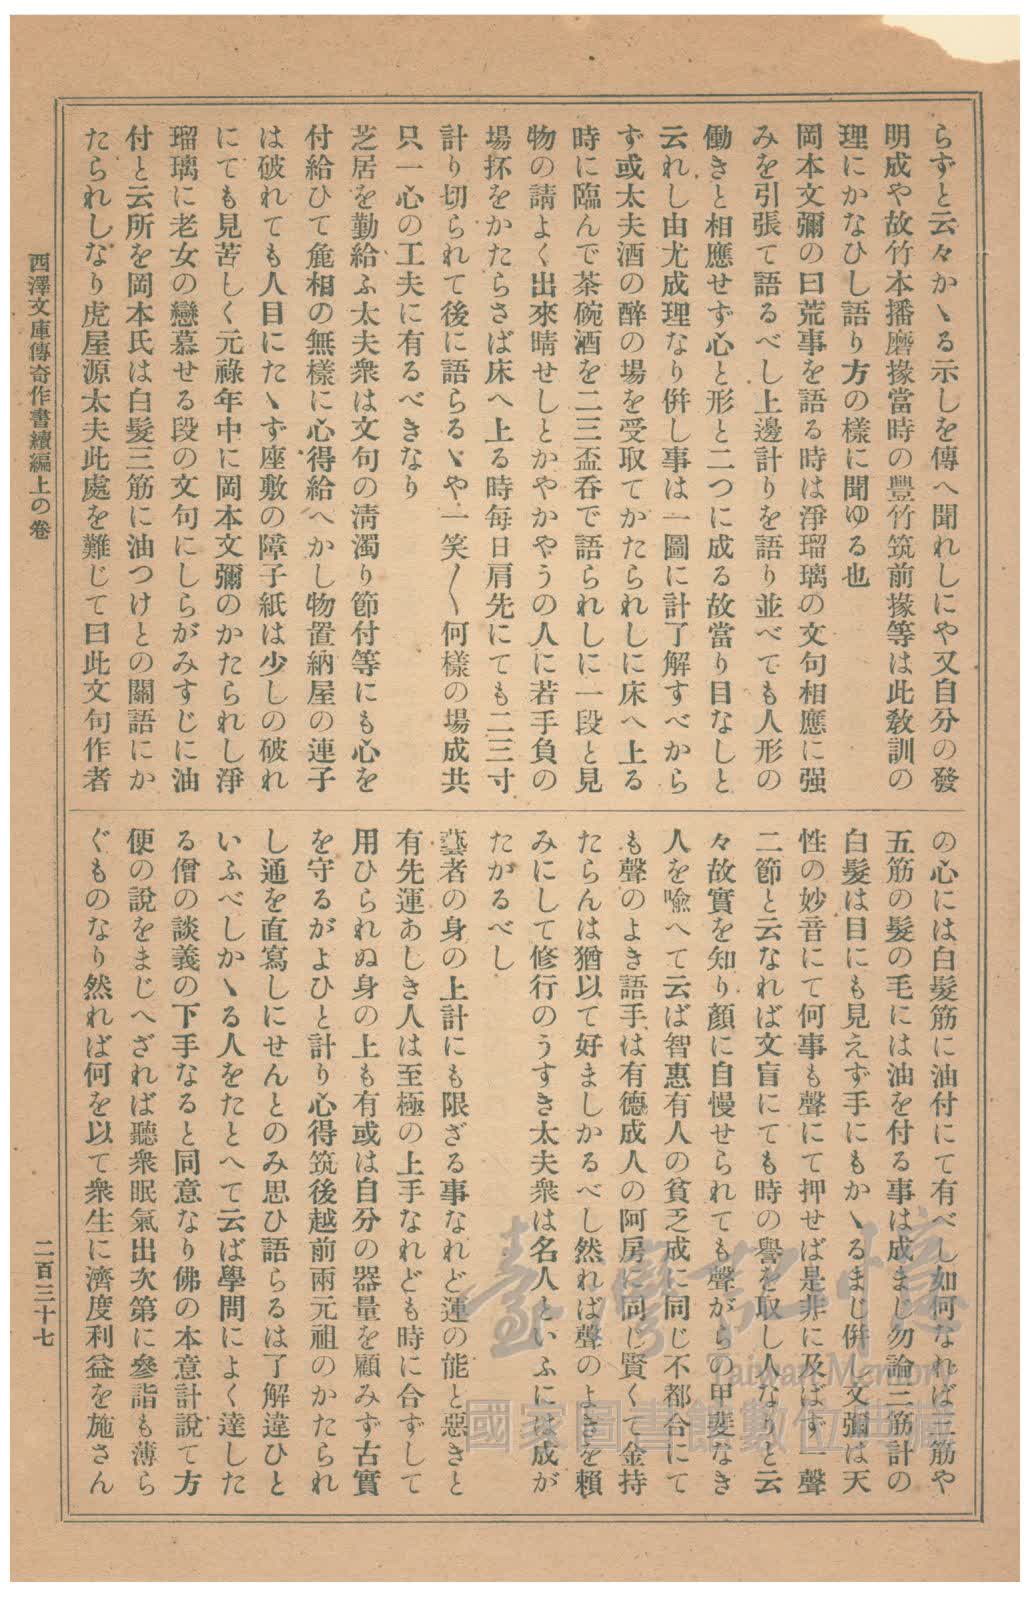 らずと云々かヽる示しを傳へ聞れしにや又自分の發
明成や故竹本播磨掾當時の豐竹筑前掾等は此敎訓の
理にかなひし語り方の樣に聞ゆる也
岡本文彌の曰荒事を語る時は淨瑠璃の文句相應に强
みを引張て語るべし上邊計りを語り並べても人形の
働きと相應せず心と形と二つに成る故當り目なしと
云れし由尤成理なり併し事は一圖に計了解すべから
ず或太夫酒の醉の場を受取てかたられしに床へ上る
時に臨んで茶碗酒を二三盃呑で語られしに一段と見
物の請よく出來晴せしとかやかやうの人に若手負の
場抔をかたらさば床へ上る時每日肩先にても二三寸
計り切られて後に語らるヽや一笑〱何樣の場成共
只一心の工夫に有るべきなり
芝居を勤給ふ太夫衆は文句の淸濁り節付等にも心を
付給ひて麁相の無樣に心得給へかし物置納屋の連子
は破れても人目にたヽず座敷の障子紙は少しの破れ
にても見苦しく元祿年中に岡本文彌のかたられし淨
瑠璃に老女の戀慕せる段の文句にしらがみすじに油
付と云所を岡本氏は白髮三筋に油つけとの關語にか
たられしなり虎屋源太夫此處を難じて曰此文句作者
の心には白髮筋に油付にて有べし如何なれば三筋や
五筋の髮の毛には油を付る事は成まじ勿論三筋計の
白髮は目にも見えず手にもかヽるまじ併し文彌は天
性の妙音にて何事も聲にて押せば是非に及ばず一聲
二節と云なれば文盲にても時の譽を取し人なりと云
々故實を知り顏に自慢せられても聲がらの甲斐なき
人を喩へて云ば智惠有人の貧乏成に同じ不都合にて
も聲のよき語手は有德成人の阿房に同じ賢くて金持
たらんは猶以て好ましかるべし然れば聲のよきを賴
みにして修行のうすき太夫衆は名人といふには成が
たかるべし
藝者の身の上計にも限ざる事なれど運の能と惡きと
有先運あしき人は至極の上手なれども時に合ずして
用ひられぬ身の上も有或は自分の器量を顧みず古實
を守るがよひと計り心得筑後越前兩元祖のかたられ
し通を直寫しにせんとのみ思ひ語らるは了解違ひと
いふべしかヽる人をたとへて云ば學問によく達した
る僧の談義の下手なると同意なり佛の本意計說て方
便の說をまじへざれば聽衆眠氣出次第に參詣も薄ら
ぐものなり然れば何を以て衆生に濟度利益を施さん
西澤文庫傳奇作書續編上の卷
二百三十七
臺灣記憶
Taiwan Memory
國家圖書館數位典藏